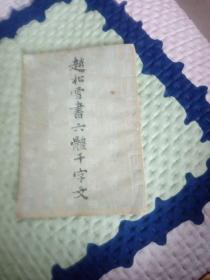 趙松雪書六體千字文